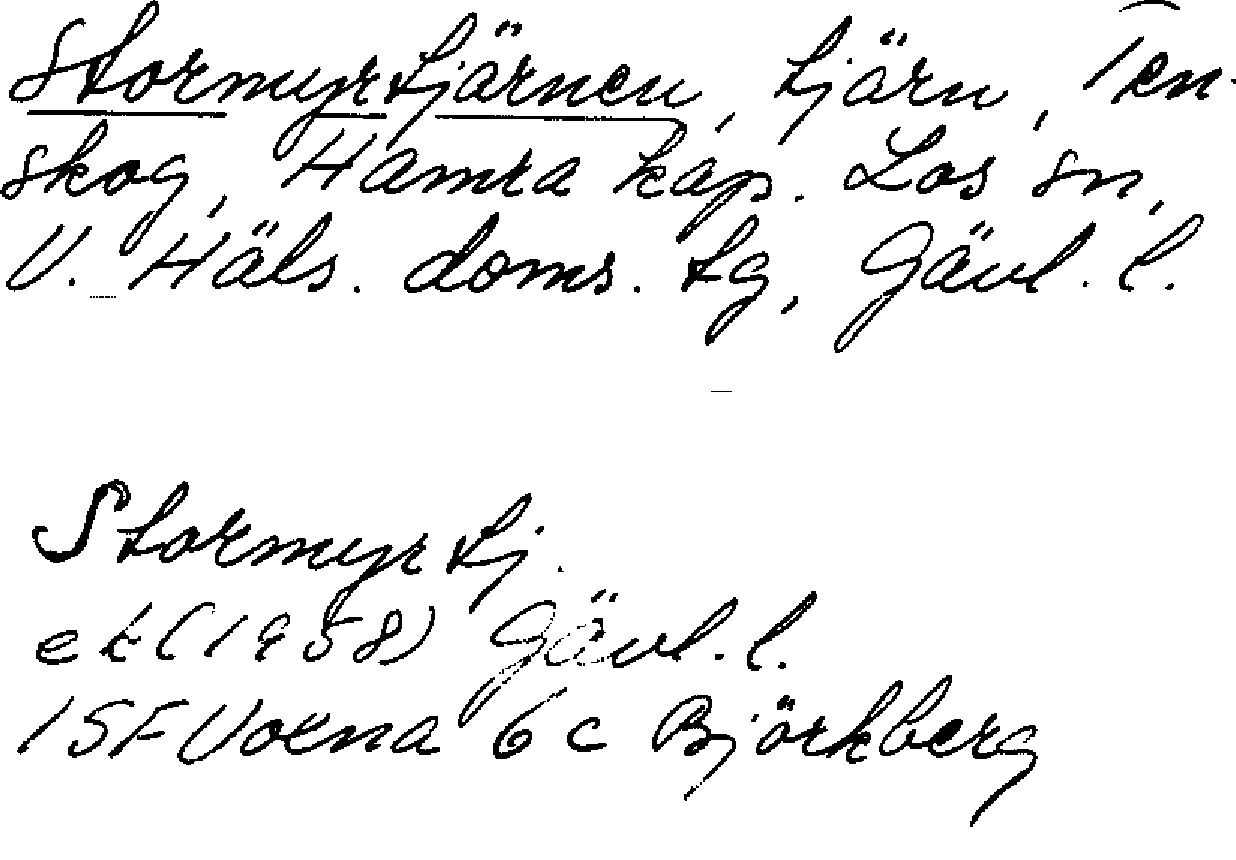 Stormyrtjärnen, tjärn, Ten-
skog, Hamra kap. Los sn,
V. Häls. doms. tg, Gävl. l.
Stormyrtj.
ek (1958) Gävl. l.
15F Voxna 6c Björkberg